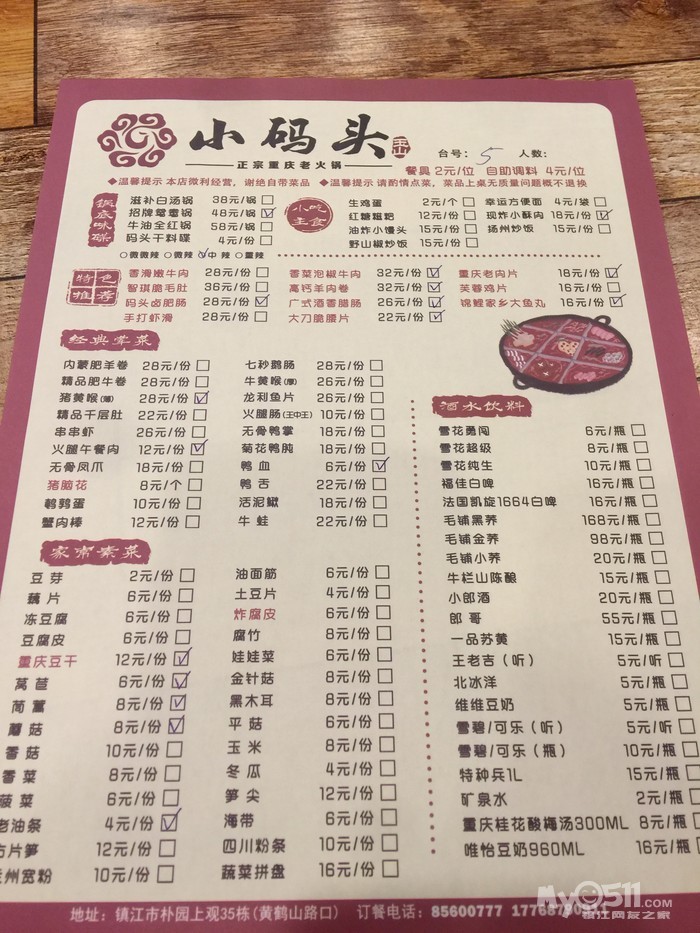 小码头 玉山
正宗重庆老火锅
台号: 5 人数:
餐具 2元/位 自助调料 4元/位
◆温馨提示 本店微利经营，谢绝自带菜品 ◆温馨提示 请酌情点菜，菜品上桌无质量问题概不退换
锅底味碟
滋补白汤锅 38元/锅
招牌鸳鸯锅 48元/锅
牛油全红锅 58元/锅
码头干料碟 4元/份
○微微辣 ○微辣 中辣 ○重辣
小吃主食
生鸡蛋 2元/个
红糖糍粑 12元/份
油炸小馒头 15元/份
野山椒炒饭 15元/份
幸运方便面 4元/袋
现炸小酥肉 18元/份
扬州炒饭 15元/份
特色推荐
香滑嫩牛肉 28元/份
智琪脆毛肚 36元/份
码头卤肥肠 28元/份
手打虾滑 28元/份
香菜泡椒牛肉 32元/份
高钙羊肉卷 32元/份
广式酒香腊肠 26元/份
大刀脆腰片 22元/份
重庆老肉片 18元/份
芙蓉鸡片 16元/份
锦鲤家乡大鱼丸 16元/份
经典荤菜
内蒙肥羊卷 28元/份
精品肥牛卷 28元/份
猪黄喉(薄) 28元/份
精品千层肚 22元/份
串串虾 26元/份
火腿午餐肉 12元/份
无骨凤爪 18元/份
猪脑花 8元/个
鹌鹑蛋 10元/份
蟹肉棒 12元/份
七秒鹅肠 28元/份
牛黄喉(厚) 26元/份
龙利鱼片 26元/份
火腿肠(王中王) 10元/份
无骨鸭掌 18元/份
菊花鸭肫 18元/份
鸭血 6元/份
鸭舌 22元/份
活泥鳅 18元/份
牛蛙 22元/份
家常素菜
豆芽 2元/份
藕片 6元/份
冻豆腐 6元/份
豆腐皮 6元/份
重庆豆干 12元/份
莴苣 6元/份
茼蒿 8元/份
蘑菇 8元/份
香菇 10元/份
香菜 8元/份
菠菜 6元/份
老油条 4元/份
方片笋 12元/份
州宽粉 10元/份
油面筋 6元/份
土豆片 4元/份
炸腐皮 6元/份
腐竹 8元/份
娃娃菜 6元/份
金针菇 8元/份
黑木耳 8元/份
平菇 6元/份
玉米 8元/份
冬瓜 4元/份
笋尖 12元/份
海带 6元/份
四川粉条 10元/份
蔬菜拼盘 16元/份
酒水饮料
雪花勇闯 6元/瓶
雪花超级 8元/瓶
雪花纯生 10元/瓶
福佳白啤 16元/瓶
法国凯旋1664白啤 16元/瓶
毛铺黑荞 168元/瓶
毛铺金荞 98元/瓶
毛铺小荞 20元/瓶
牛栏山陈酿 15元/瓶
小郎酒 20元/瓶
郎哥 55元/瓶
一品苏黄 15元/瓶
王老吉（听） 5元/听
北冰洋 5元/瓶
维维豆奶 5元/瓶
雪碧/可乐（听） 5元/听
雪碧/可乐（瓶） 10元/瓶
特种兵1L 15元/瓶
矿泉水 2元/瓶
重庆桂花酸梅汤300ML 8元/瓶
唯怡豆奶960ML 16元/瓶
地址: 镇江市朴园上观35栋(黄鹤山路口) 订餐电话: 85600777
My0511.com
镇江网友之家